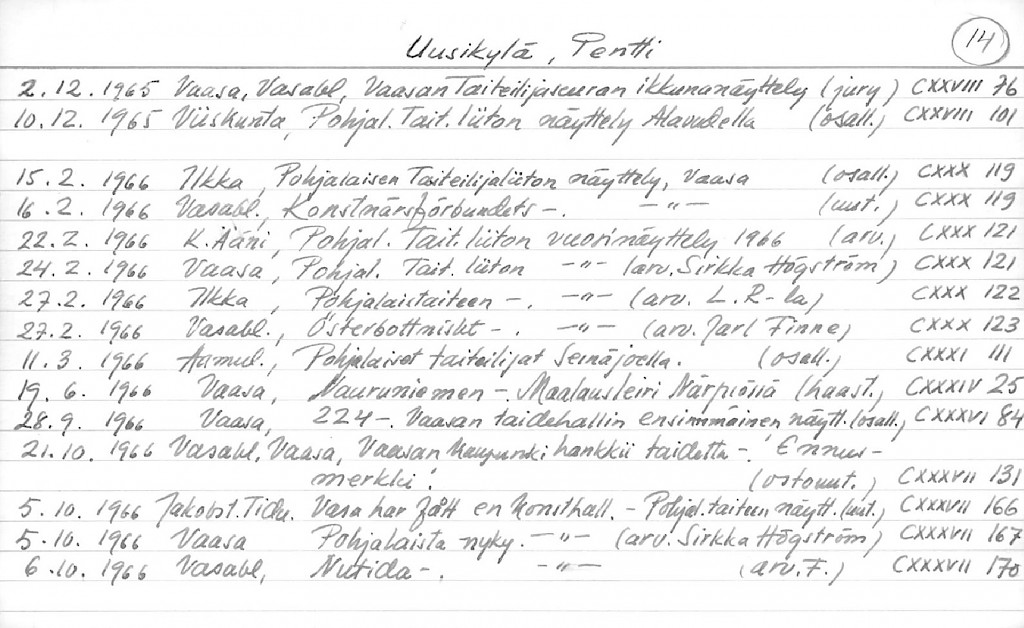 Uusikylä, Pentti 14
2.12.1965 Vaasa, Vasabl, Vaasan Taiteilijaseuran ikkunanäyttely (jury) CXXVIII 76
10.12.1965 Viiskunta, Pohjal. Tait. liiton näyttely Alavudella (osall.) CXXVIII 101
15.2.1966 Ilkka, Pohjalaisen Taiteilijaliiton näyttely, Vaasa (osall.) CXXX 119
16.2.1966 Vasabl., Konstnärsförbundets -. -"- (uut.) CXXX 119
22.2.1966 K. Ääni, Pohjal. Tait. liiton vuosinäyttely 1966 (arv.) CXXX 121
24.2.1966 Vaasa, Pohjal. Tait. liiton -"- (arv. Sirkka Högström) CXXX 121
27.2.1966 Ilkka, Pohjalaistaiteen -. -"- (arv. L.R-la) CXXX 122
27.2.1966 Vasabl., Österbottniskt -. -"- (arv. Jarl Finne) CXXX 123
11.3.1966 Aamul., Pohjalaiset taiteilijat Seinäjoella. (osall.) CXXXI 111
19.6.1966 Vaasa, Nauruniemen -. Maalausleiri Närpiössä (haast.) CXXXIV 25
28.9.1966 Vaasa, 224 -. Vaasan taidehallin ensimmäinen näytt. (osall.) CXXXVI 84
21.10.1966 Vasabl, Vaasa, Vaasan kaupunki hankkii taidetta -. 'Ennus-
merkki'. (ostouut.) CXXXVII 131
5.10.1966 Jakobst. Tidn. Vasa har fått en konsthall. - Pohjal. taiteen näytt. (uut.) CXXXVII 166
5.10.1966 Vaasa Pohjalaista nyky. -"- (arv. Sirkka Högström) CXXXVII 167
6.10.1966 Vasabl, Nutida -. -"- (arv. F.) CXXXVII 170